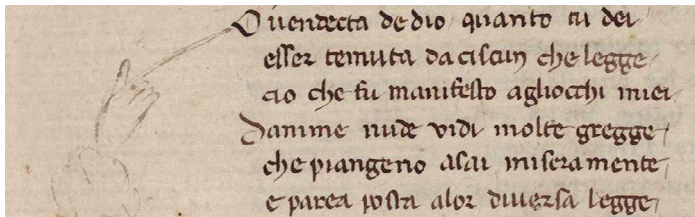 O uendecta de dio / quanto tu dei /
esser temuta da ciscun che legge /
cio che fu manifesto agliocchi miei /
Danime nude vidi molte gregge /
che piangeno asai miseramente /
e parea posta alor diuersa legge /